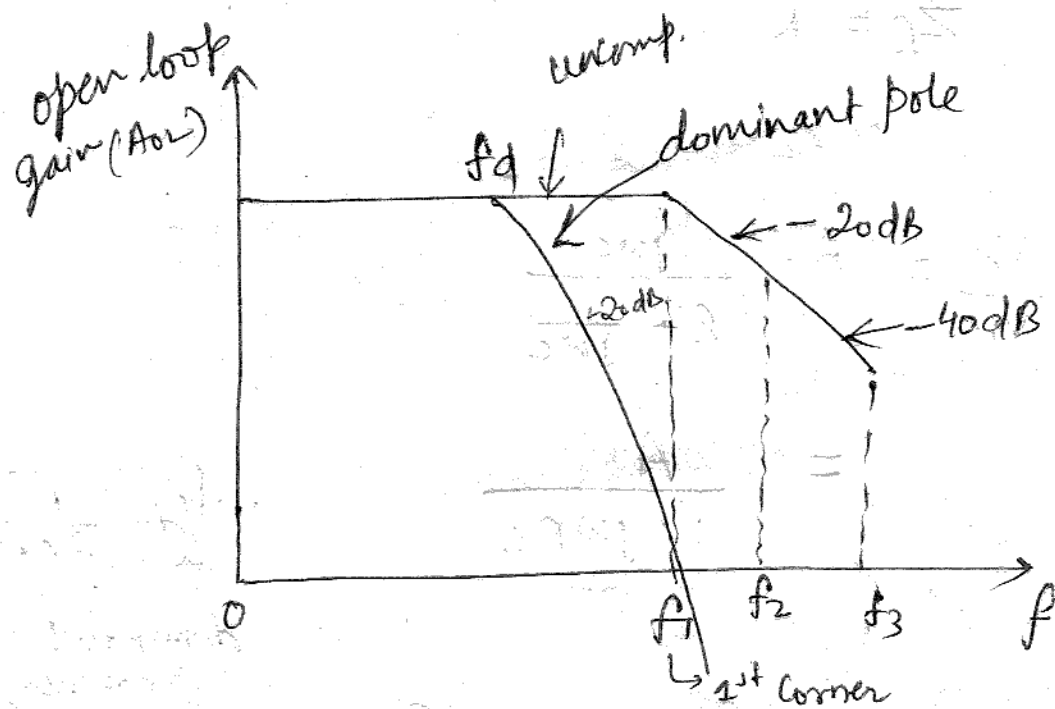 open loop
gain (AOL)
uncomp.
dominant pole
fd
-20dB
-20dB
-40dB
0
f1
f2
f3
f
1st Corner